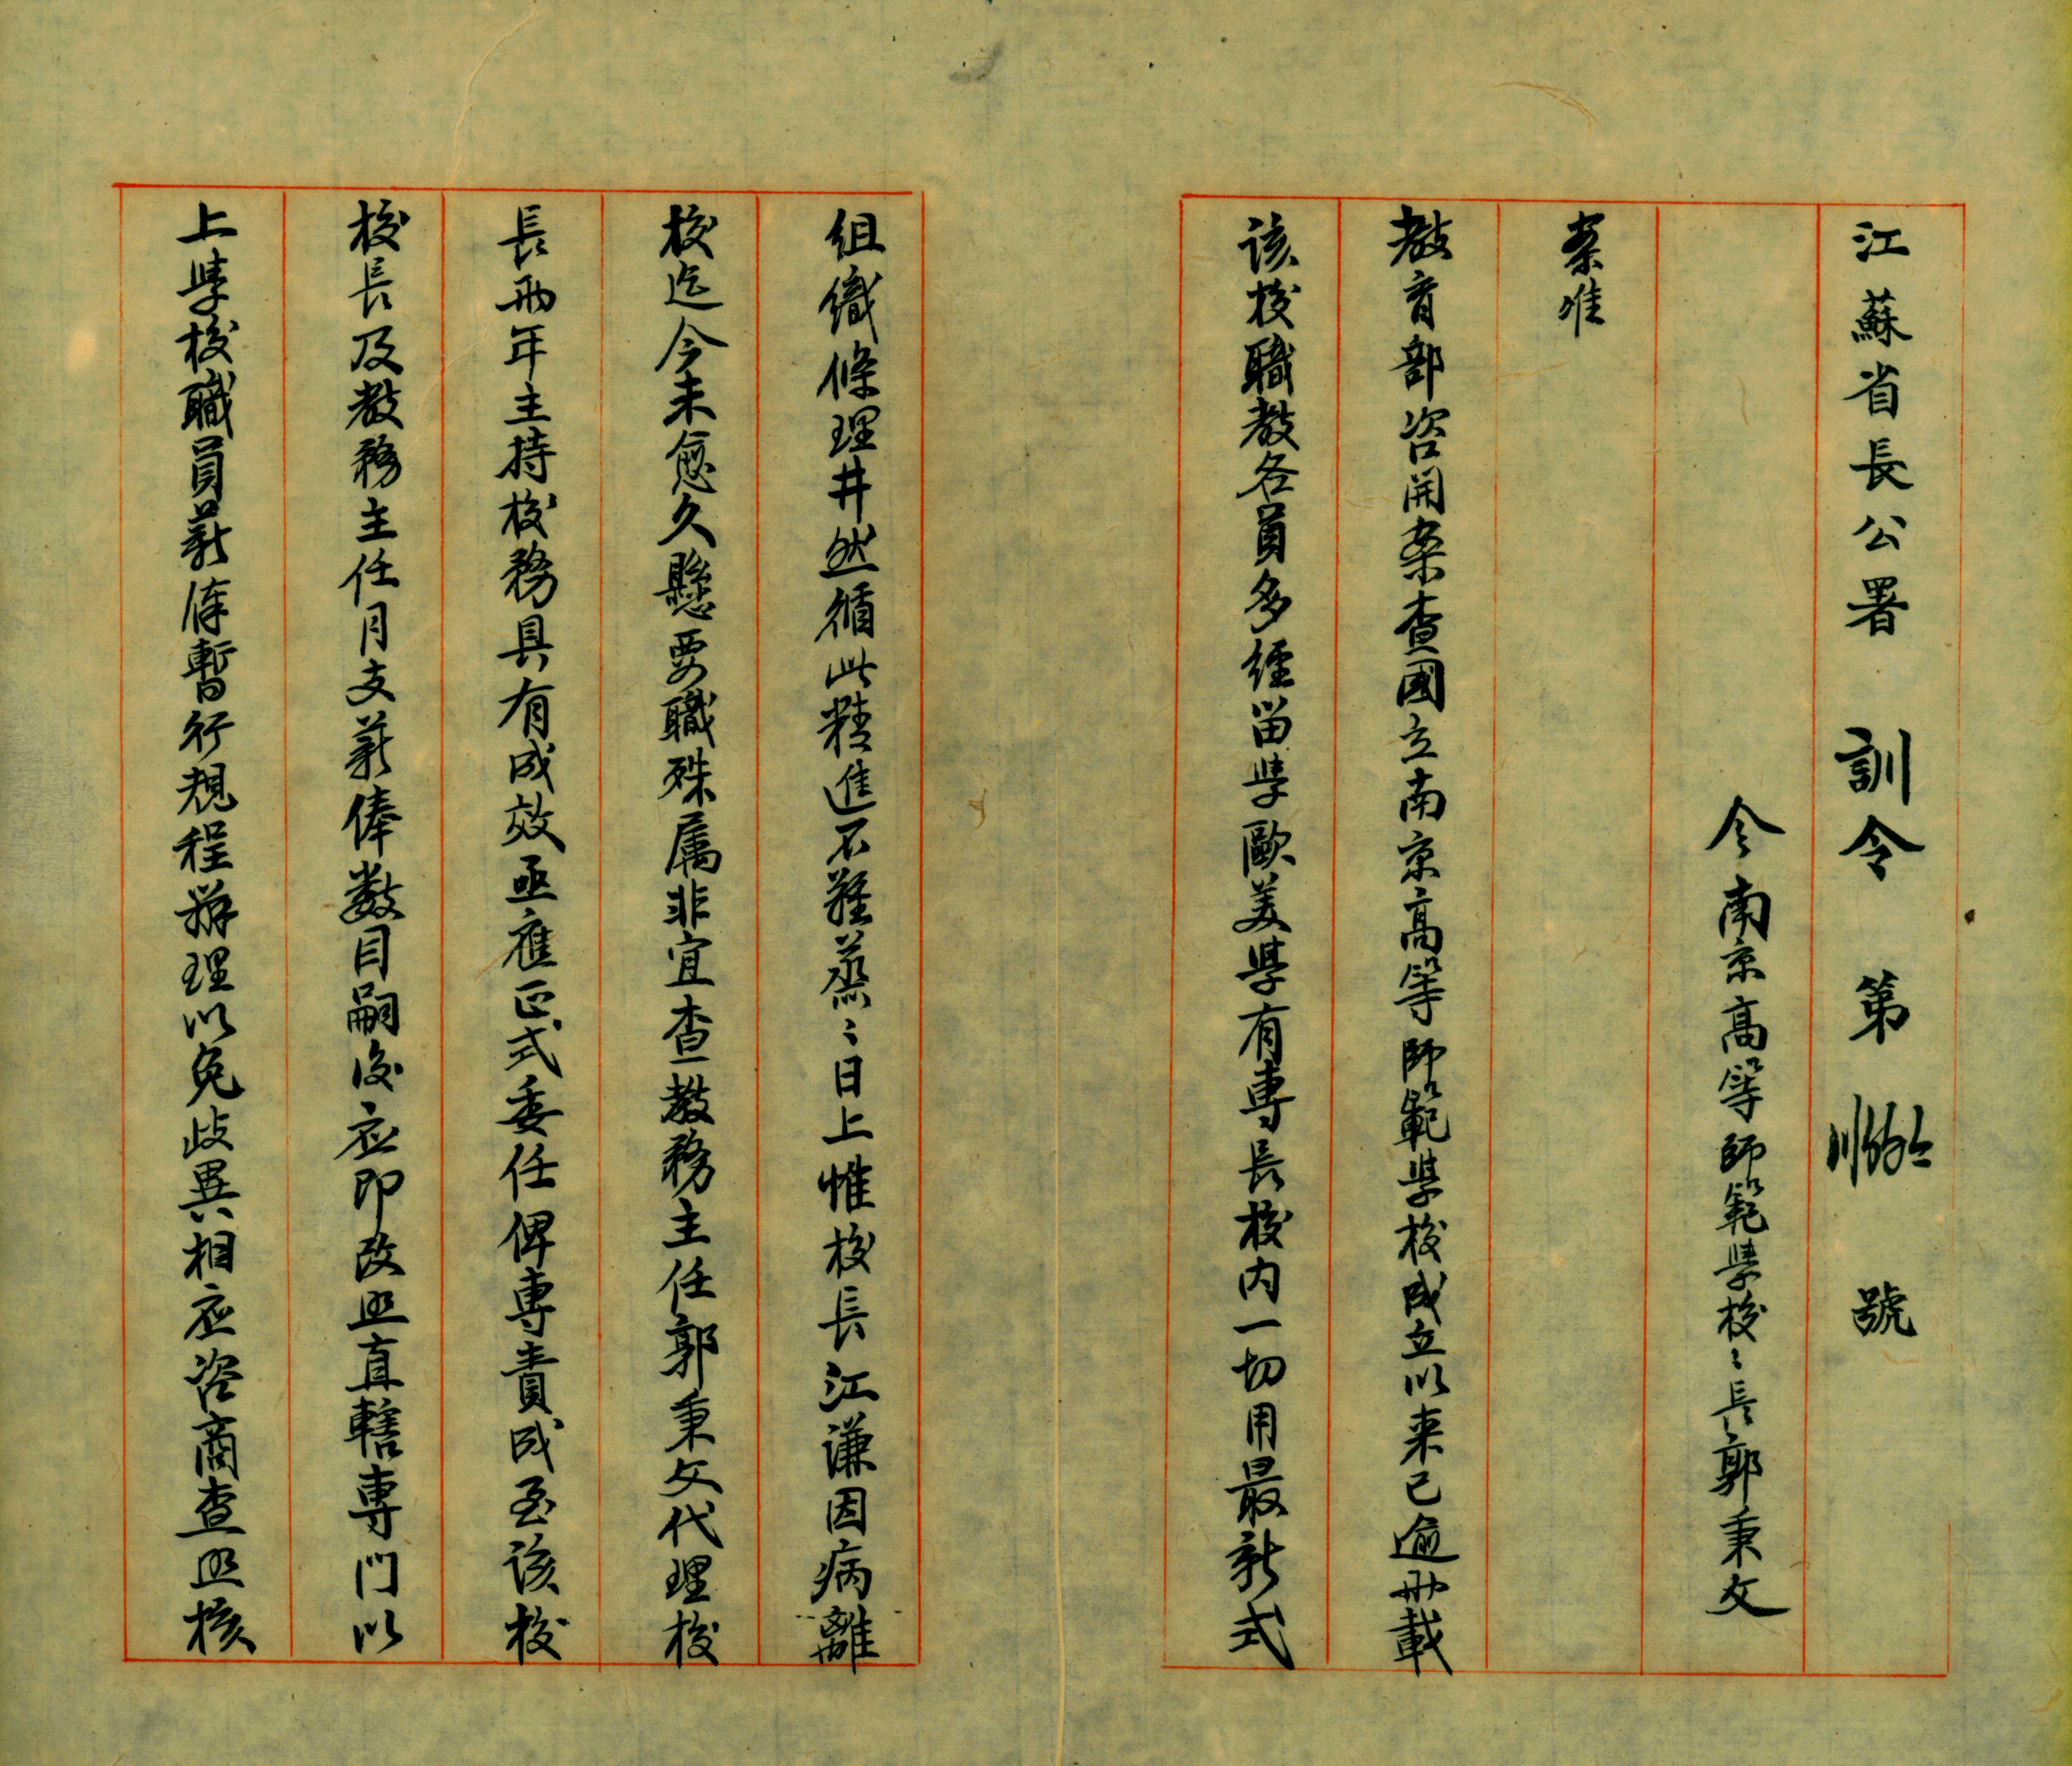 江蘇省長公署 訓令 第 號
令南京高等師範學校〻長郭秉文
案准
教育部咨開案查國立南京高等師範學校成立以来已逾卌載
該校職教各員多經留學歐美學有專長校内一切用最新式
組織條理井然循此精進不難蒸〻日上惟校長江謙因病離
校迄今未愈久懸要職殊属非宜查教務主任郭秉文代理校
長兩年主持校務具有成效亟應正式委任俾專責成至該校
校長及教務主任月支薪俸数目嗣後应即改照直轄專门以
上學校職員薪俸暫行規程辦理以免歧異相应咨商查照核